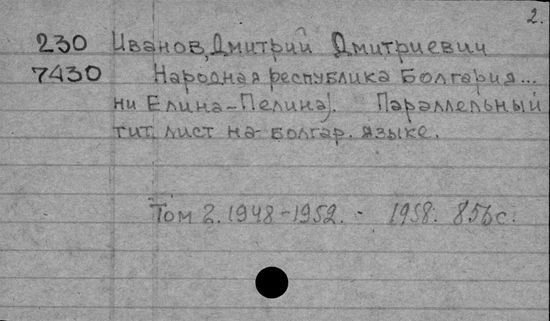 2.
230 Иванов, Дмитрий Дмитриевич
7430 Народная республика Болгария...
ни Елина-Пелина). Параллельный
тит. лист на болгар. языке.
Том 2. 1948-1952. - 1958. 856 с.